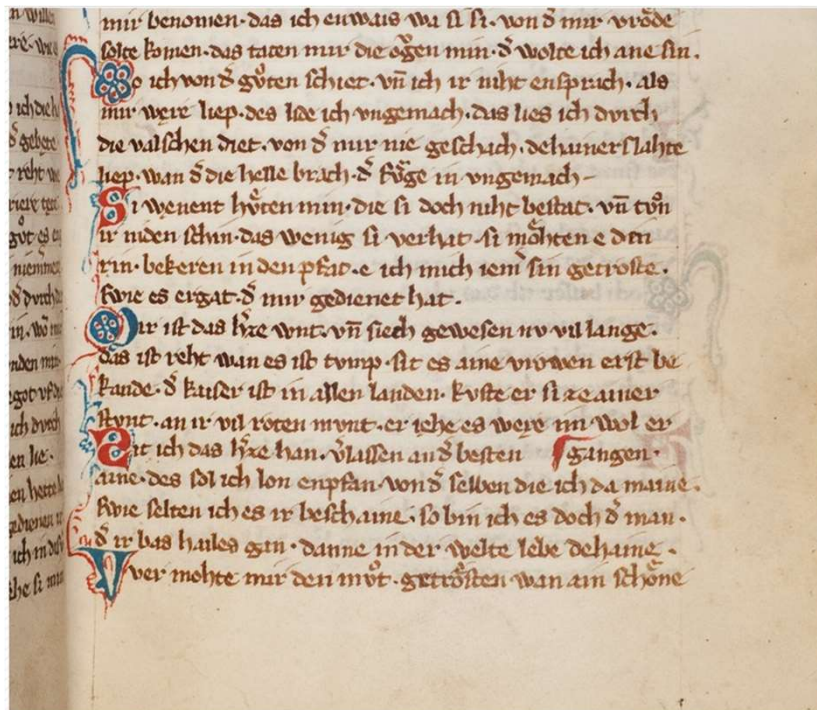 mir benomen·das ich enwais wa si si·von dˢ mir vrȯde
solte komen·das taten mir die ǒgen min·dˢ wolte ich ane sin.
Do ich von dˢ gůten schiet·vn̄ ich ir niht ensprach·als
mir were liep·des lide ich vngemach·das lies ich dvrch
die valschen diet·von dˢ mir nie geschach·dehainer slahte
liep·wan dˢ die helle brach·dˢ fv̊ge in vngemach–
Si wenent hv̊ten min·die si doch niht bestat·vn̄ tv̊n
ir niden schin·das wenig si verhat·si mo̊hten e den
rin·bekeren in den pfat·e ich mich iemˢ sin getroste·
swie es ergat·dˢ mir gedienet hat·
Mir ist das hˢze wnt·vn̄ siech gewesen nv vil lange·
das ist reht wan es ist tvmp·sit es aine vrowen erst be
kande·dˢ kaiser ist in allen landen·kvste er si ze ainer
stvnt·an ir vil roten mvnt·er iehe es were im wol er
gangen·
Sit ich das hˢze han·vˢlassen an dˢ besten
aine·des sol ich lon enpfan·von dˢ selben die ich da maine·
swie selten ich es ir beschaine·so bin ich es doch dˢ man·
dˢ ir bas hailes gan·danne in der welte lebe dehaine·
Wer mohte mir den mv̊t·getrȯsten wan ain schȯne